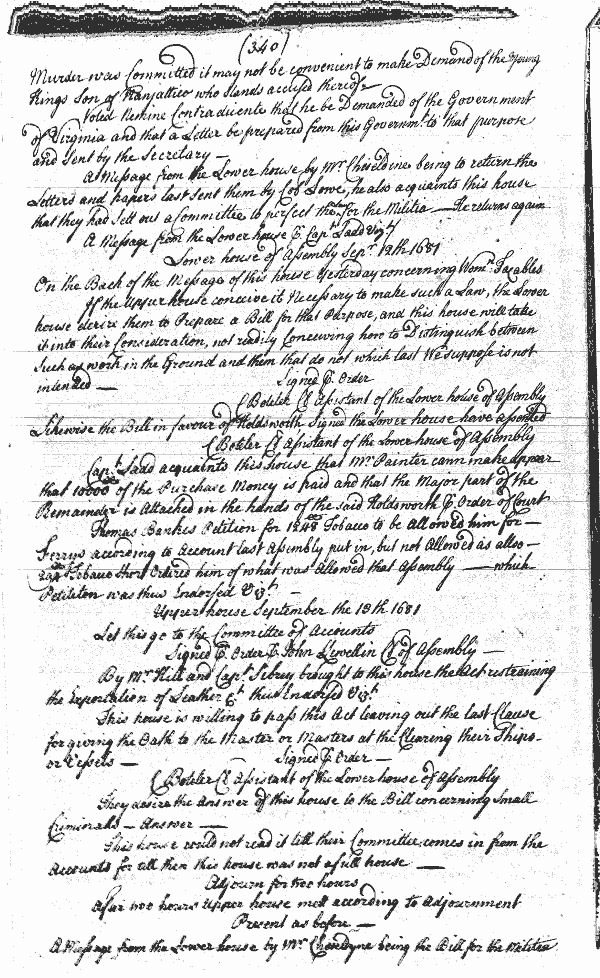 (340)
Murder was Committed it may not be convenient to make Demand of the Young
Kings Son of Nanjattico who stands accused thereof
Voted Nemine Contradicente that he be Demanded of the Government
of Virginia and that a Letter be prepared from this Governmt. to that purpose
and sent by the Secretary —
A Message from the Lower house by Mr. Cheseldine being to return the
Letters and papers last sent them by Cos Lowe, he also acquaints this house
that they had sett out a Committee to perfect the for the Militia — He returns again
A Message from the Lower house P Capt. Ladd Vizt
Lower house of Assembly Sepr. 12th 1681
On the Back of the Message of this house Yesterday concerning Womn. Taxables
If the upper house conceive it Necessary to make such a Law, the Lower
house desire them to Prepare a Bill for that Purpose, and this house will take
it into their Consideration, not readily Conceiving how to Distinguish between
Such as work in the Ground and them that do not which last We suppose is not
intended —
Signed P. Order
Boteler Cl Assistant of the Lower house of Assembly
Likewise the Bill in favour of Holdsworth Signed the Lower house have assented
Boteler Cl Assistant of the Lower house of Assembly
Capt. Ladd acquaints this house that Mr. Painter cann make appear
that 10000 of the Purchase Money is paid and that the Major part of the
Remainder is Attached in the hands of the said Holdsworth P Order of Court
Thomas Bankes Petition for 1248 Tobacco to be Allowed him for —
Ferrys according to Account last Assembly put in, but not Allowed as also —
Tobacco short Ordered him of what was Allowed that Assembly — which
Petition was thus Endorsed Vizt. —
Upper house September the 13th 1681
Let this go to the Committee of Accounts
Signed P. Order P John Llewellin Cl of Assembly —
By Mr. Hill and Capt. Sibrey brought to this house the Act restraining
the Exportation of Leather &t. thus Endorsed Vizt.
This house is willing to pass this Act leaving out the last Clause
for giving the Oath to the Master or Masters at the Clearing their Ships
or Vessels —
Signed P Order —
Boteler Cl Assistant of the Lower house of Assembly
They desire the Answer of this house to the Bill concerning Small
Criminalls — Answer —
This house could not read it till their Committee comes in from the
Accounts for till then this house was not a full house —
Adjourn for two hours
After two hours Upper house mett according to Adjournment
Present as before —
A Message from the Lower house by Mr. Cheseldyne being the Bill for the Militia